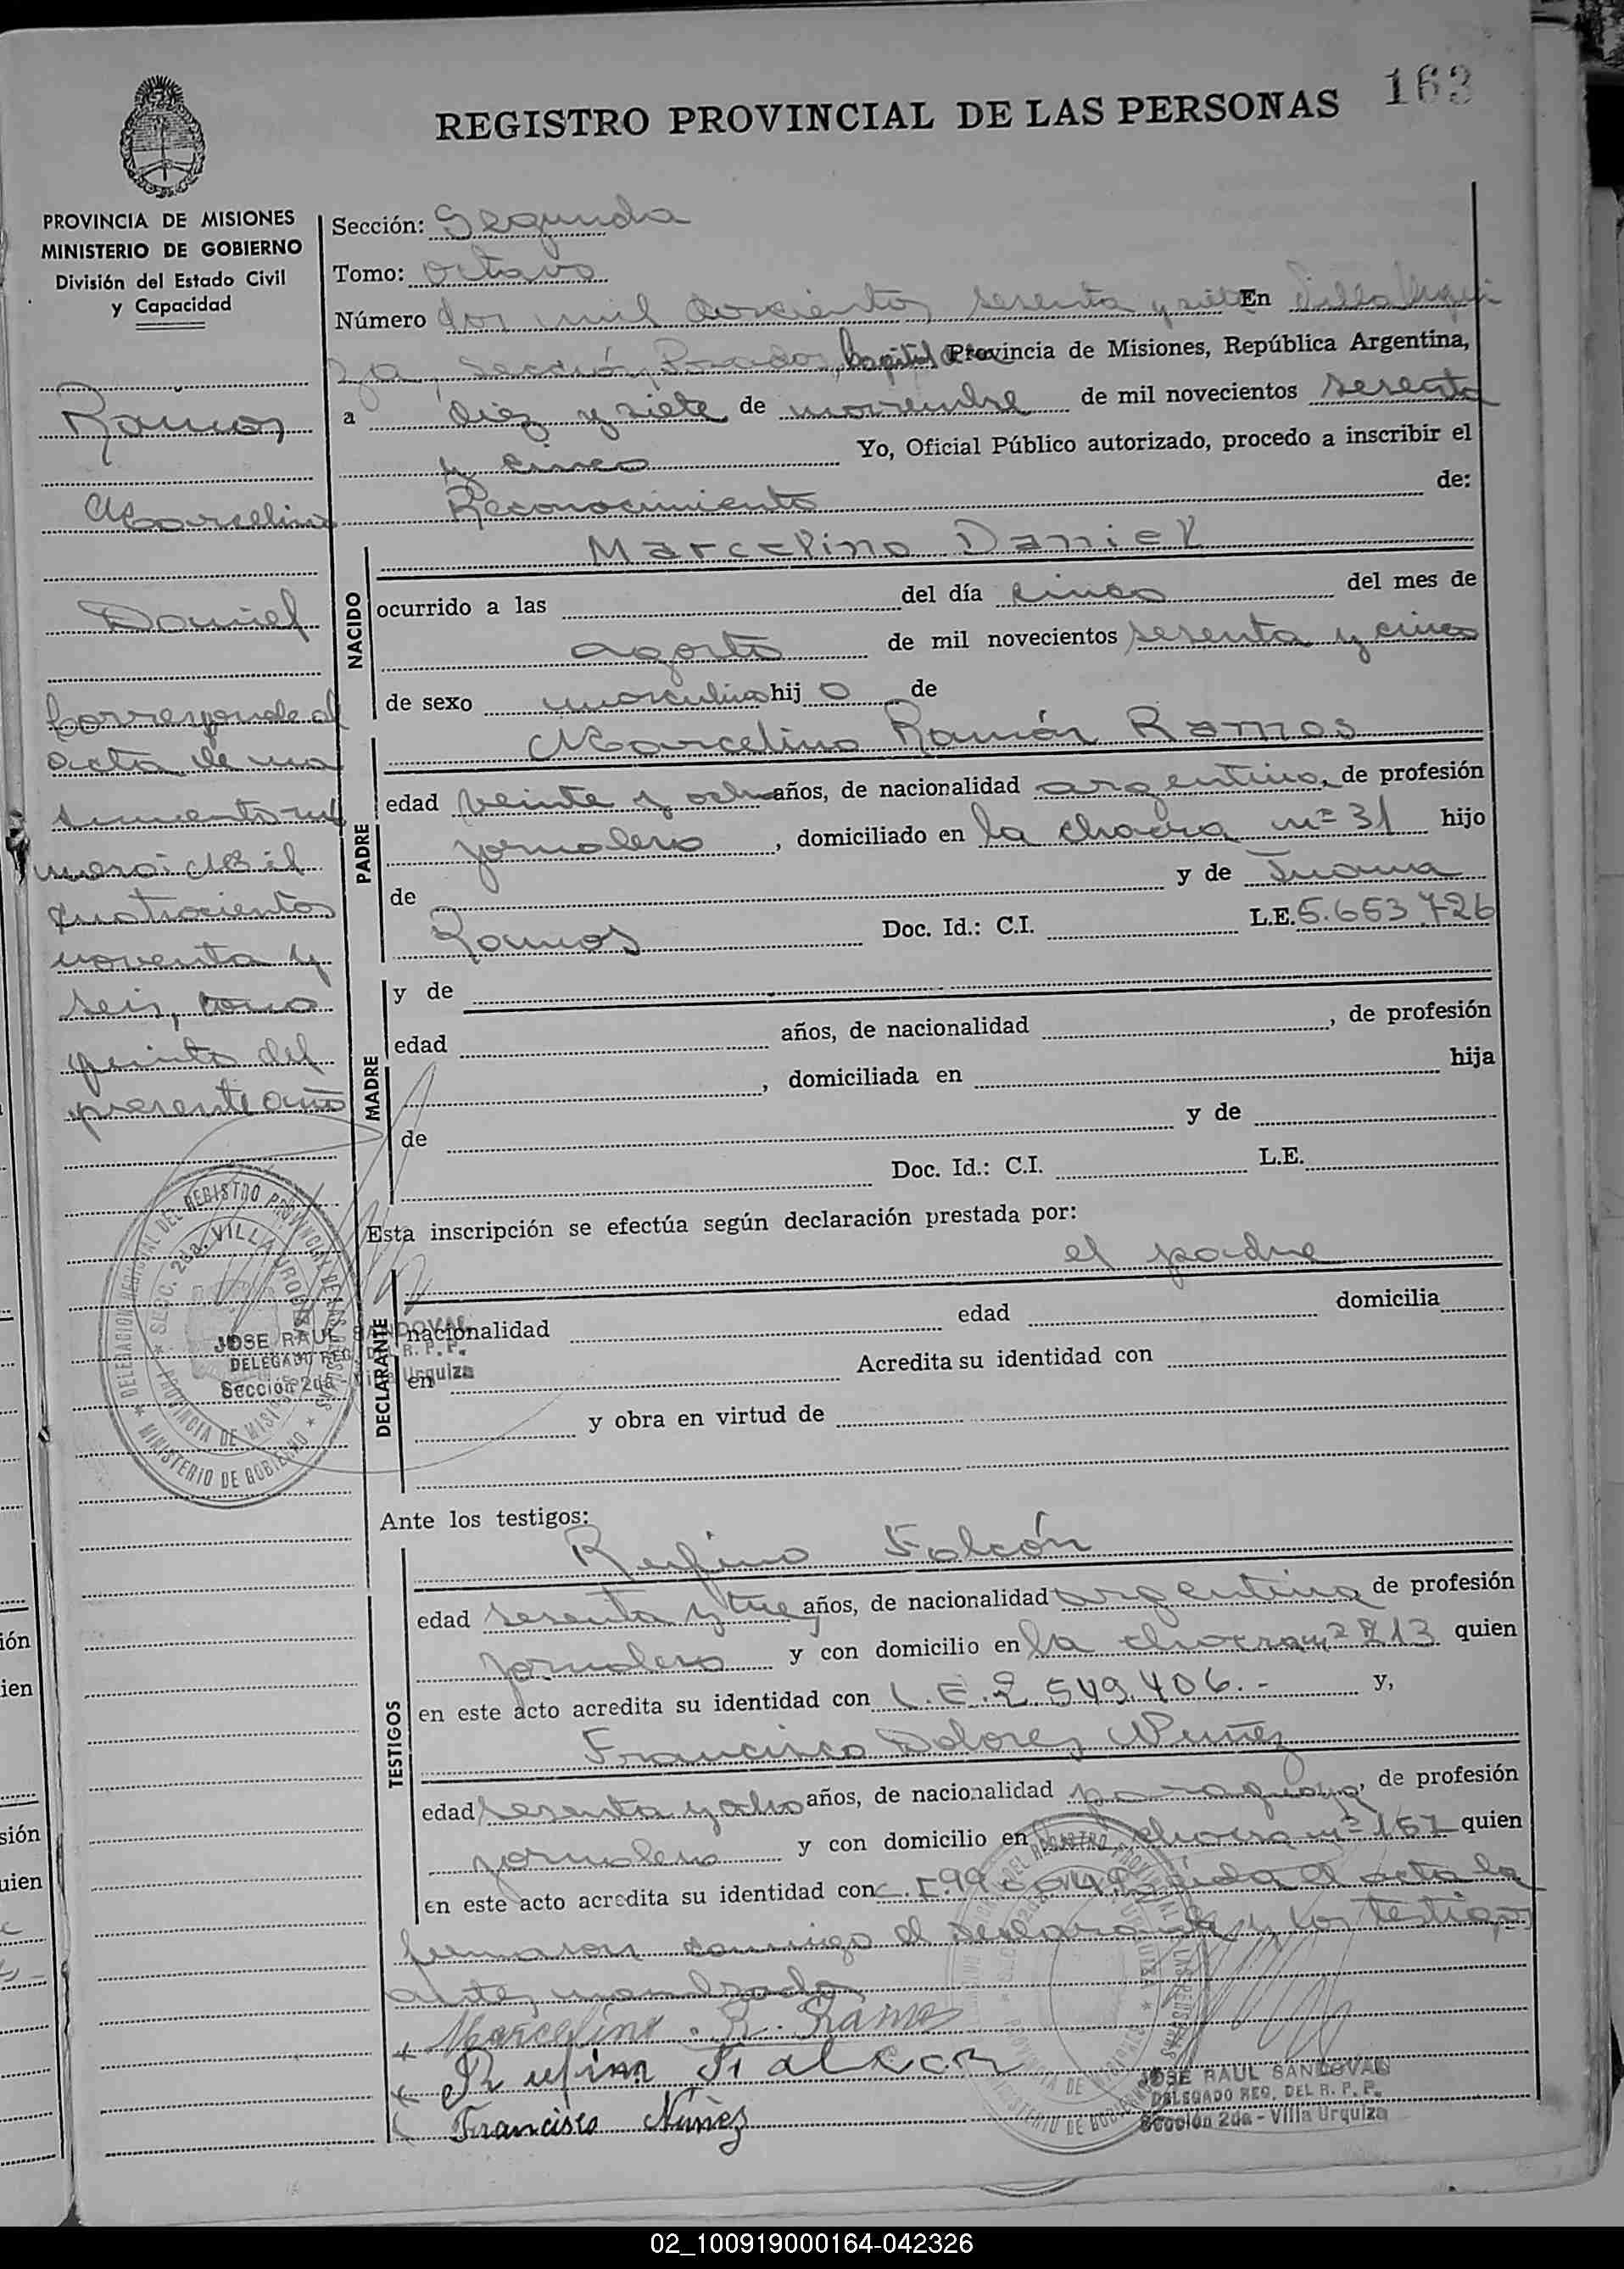 163
REGISTRO PROVINCIAL DE LAS PERSONAS
PROVINCIA DE MISIONES
MINISTERIO DE GOBIERNO
División del Estado Civil
y Capacidad
Ramos
Marcelino
Daniel
Corresponde al
acta de na
cimiento nú
mero: Mil
cuatrocientos
noventa y
seis, tomo
quinto del
presente año
Sección: Segunda
Tomo: octavo
Número dos mil doscientos sesenta y siete En Villa Urqui
za, Sección Posadas, Capital Provincia de Misiones, República Argentina,
a diez y siete de noviembre de mil novecientos sesenta
y cinco Yo, Oficial Público autorizado, procedo a inscribir el
Reconocimiento de:
NACIDO
Marcelino Daniel
ocurrido a las del día cinco del mes de
agosto de mil novecientos sesenta y cinco
de sexo masculino hijo de
PADRE
Marcelino Ramón Ramos
edad veinte y ocho años, de nacionalidad argentino, de profesión
jornalero, domiciliado en la chacra nº 31 hijo
de y de Juana
Ramos Doc. Id.: C.I. L.E. 5.653.726
MADRE
y de
edad años, de nacionalidad , de profesión
, domiciliada en hija
de y de
Doc. Id.: C.I. L.E.
Esta inscripción se efectúa según declaración prestada por:
el padre
DECLARANTE
nacionalidad edad domicilia
en Acredita su identidad con
y obra en virtud de
DELEGACION REGIONAL DEL REGISTRO PROVINCIAL DE LAS PERSONAS
SECC. 2da. VILLA URQUIZA
PROVINCIA DE MISIONES
MINISTERIO DE GOBIERNO
JOSE RAUL SANDOVAL
DELEGADO REG. DEL R. P. P.
Sección 2da - Villa Urquiza
Ante los testigos:
TESTIGOS
Rufino Falcón
edad sesenta y tres años, de nacionalidad argentina de profesión
jornalero y con domicilio en la chacra nº 213 quien
en este acto acredita su identidad con L.E. 2.549.406.- y,
Francisco Dolores Nuñez
edad sesenta y ocho años, de nacionalidad paraguaya, de profesión
jornalero y con domicilio en chacra nº 157 quien
en este acto acredita su identidad con leída el acta la
firmaron conmigo el declarante y los testigos
antes nombrados
Marcelino. R. Ramos
Rufino Falcon
Francisco Núñez
JOSE RAUL SANDOVAL
DELEGADO REG. DEL R. P. P.
Sección 2da - Villa Urquiza
02_100919000164-042326